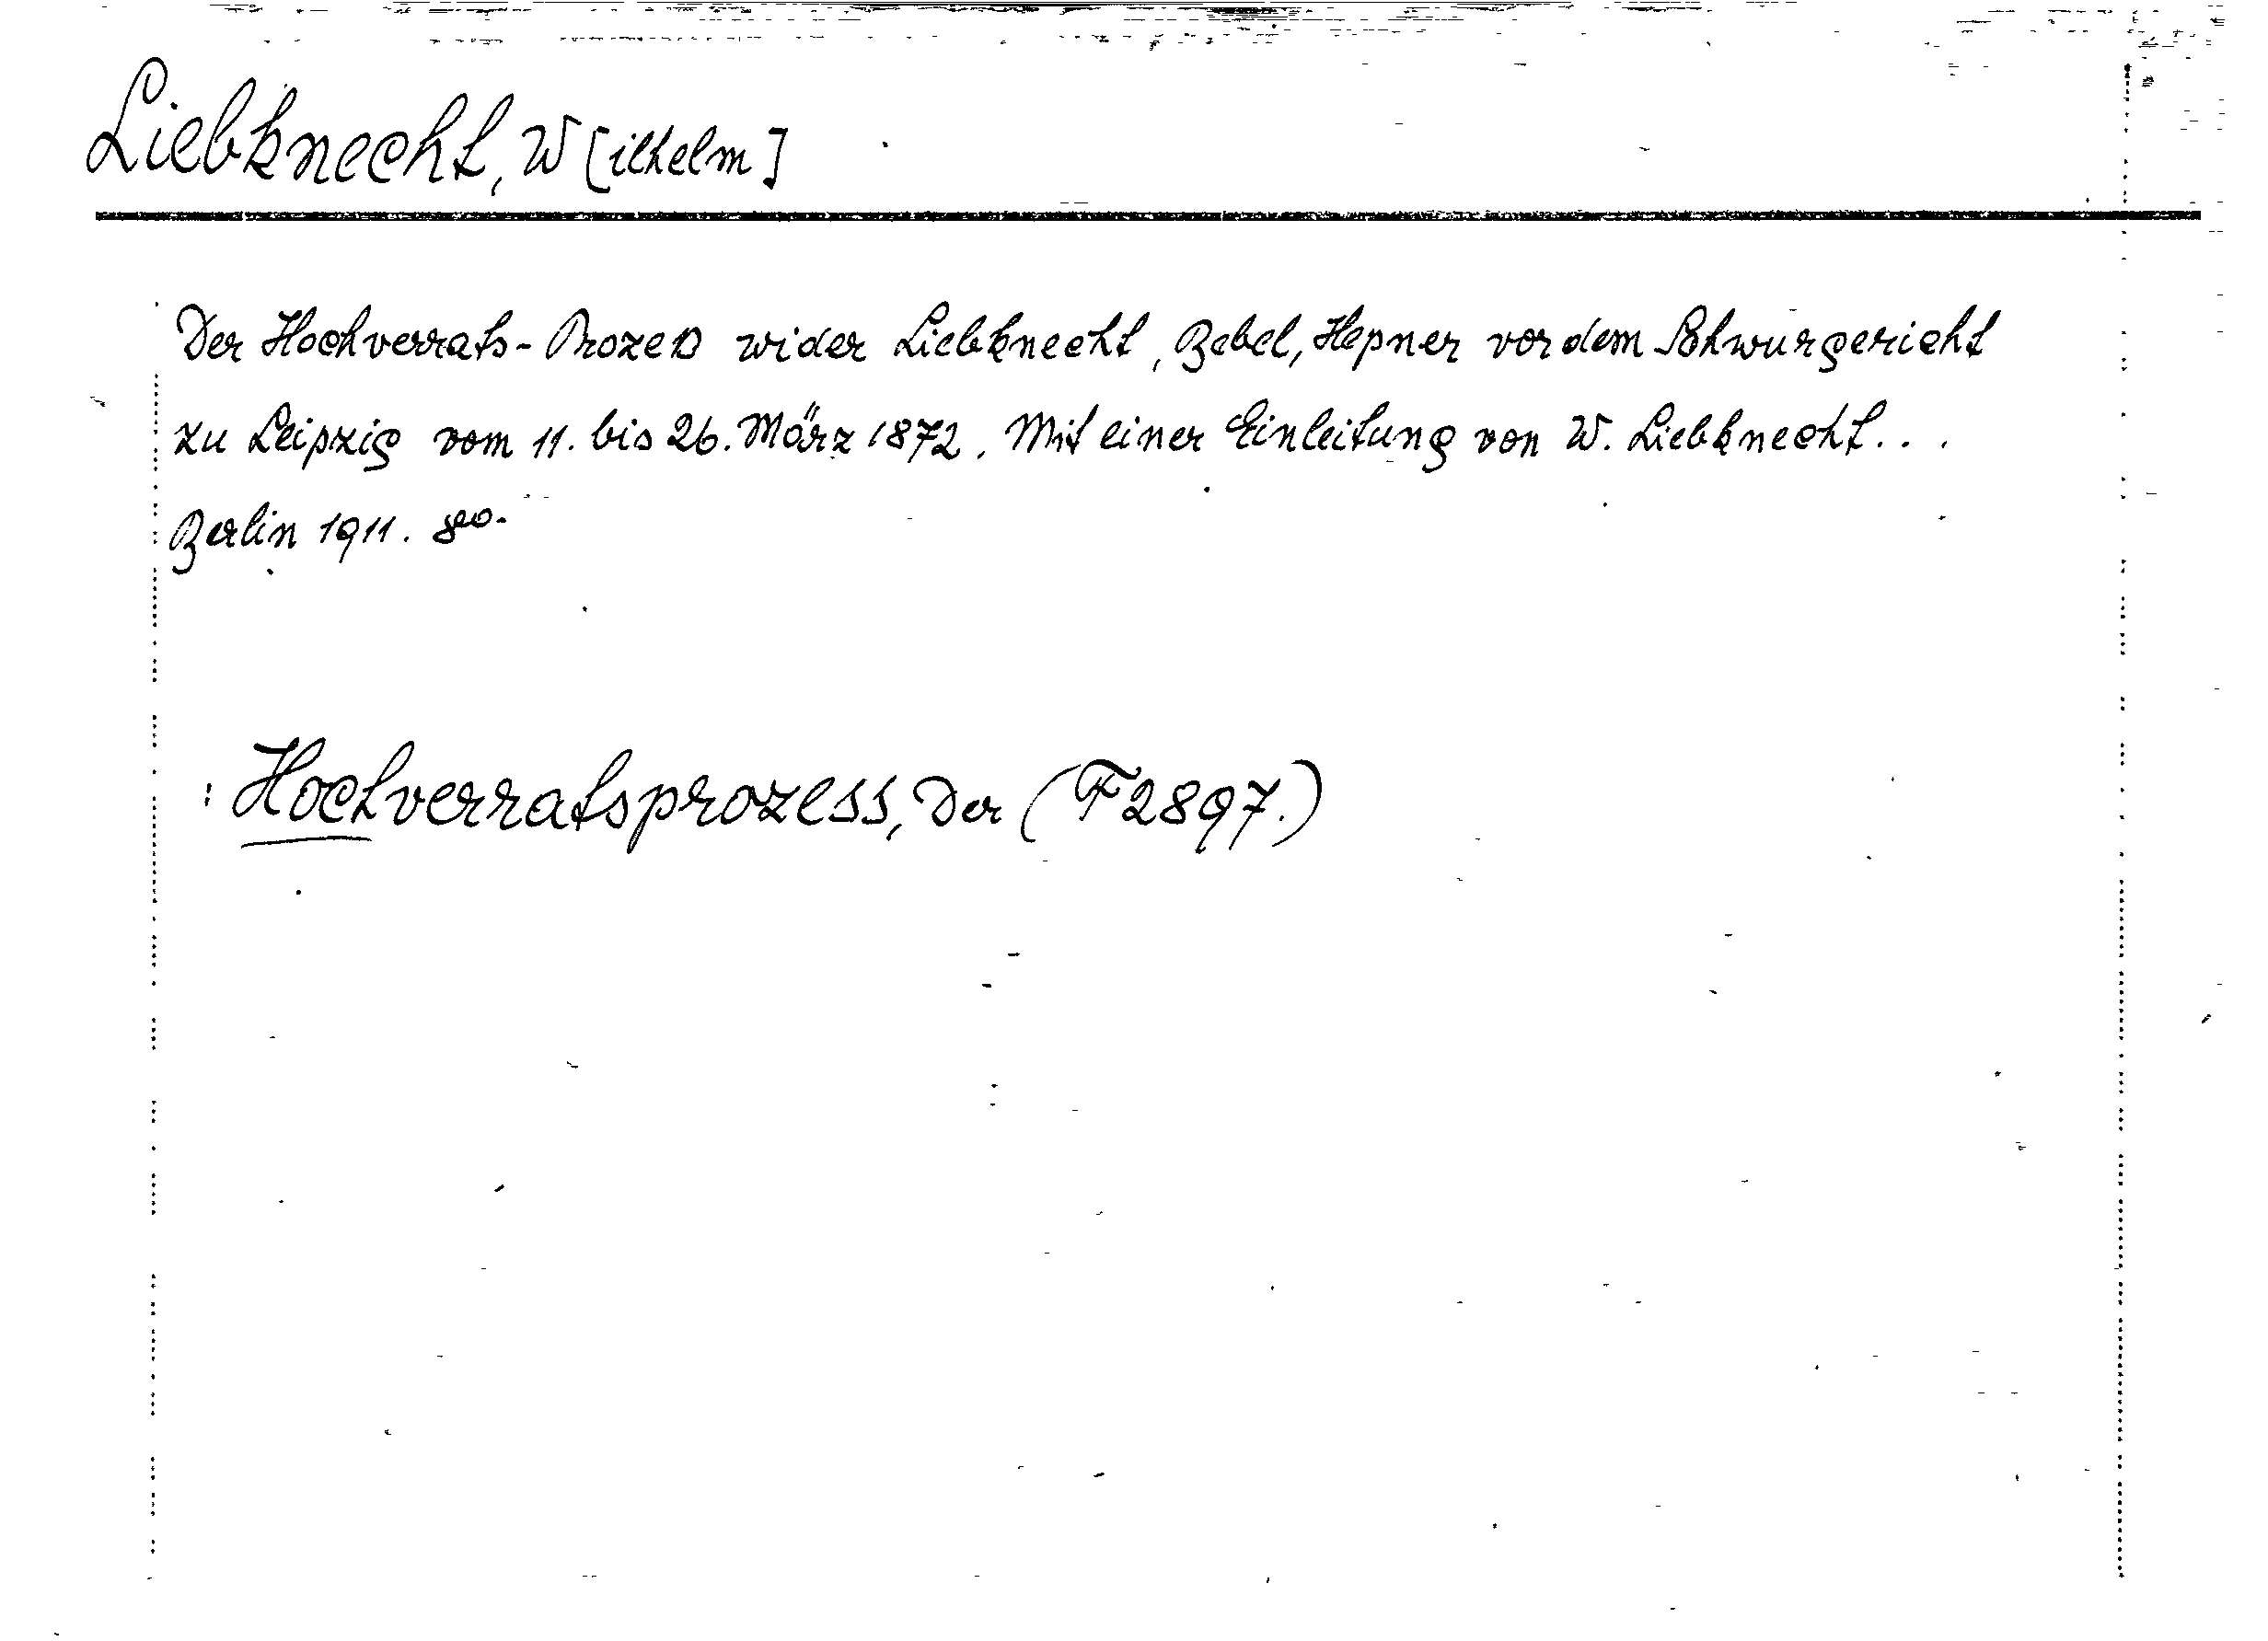 Liebknecht, W[ilhelm]
Der Hochverrats-Prozeß wider Liebknecht, Bebel, Hepner vor dem Schwurgericht
zu Leipzig vom 11. bis 26. März 1872. Mit einer Einleitung von W. Liebknecht...
Berlin 1911. 8vo.
: Hochverratsprozess, Der (F 2897.)